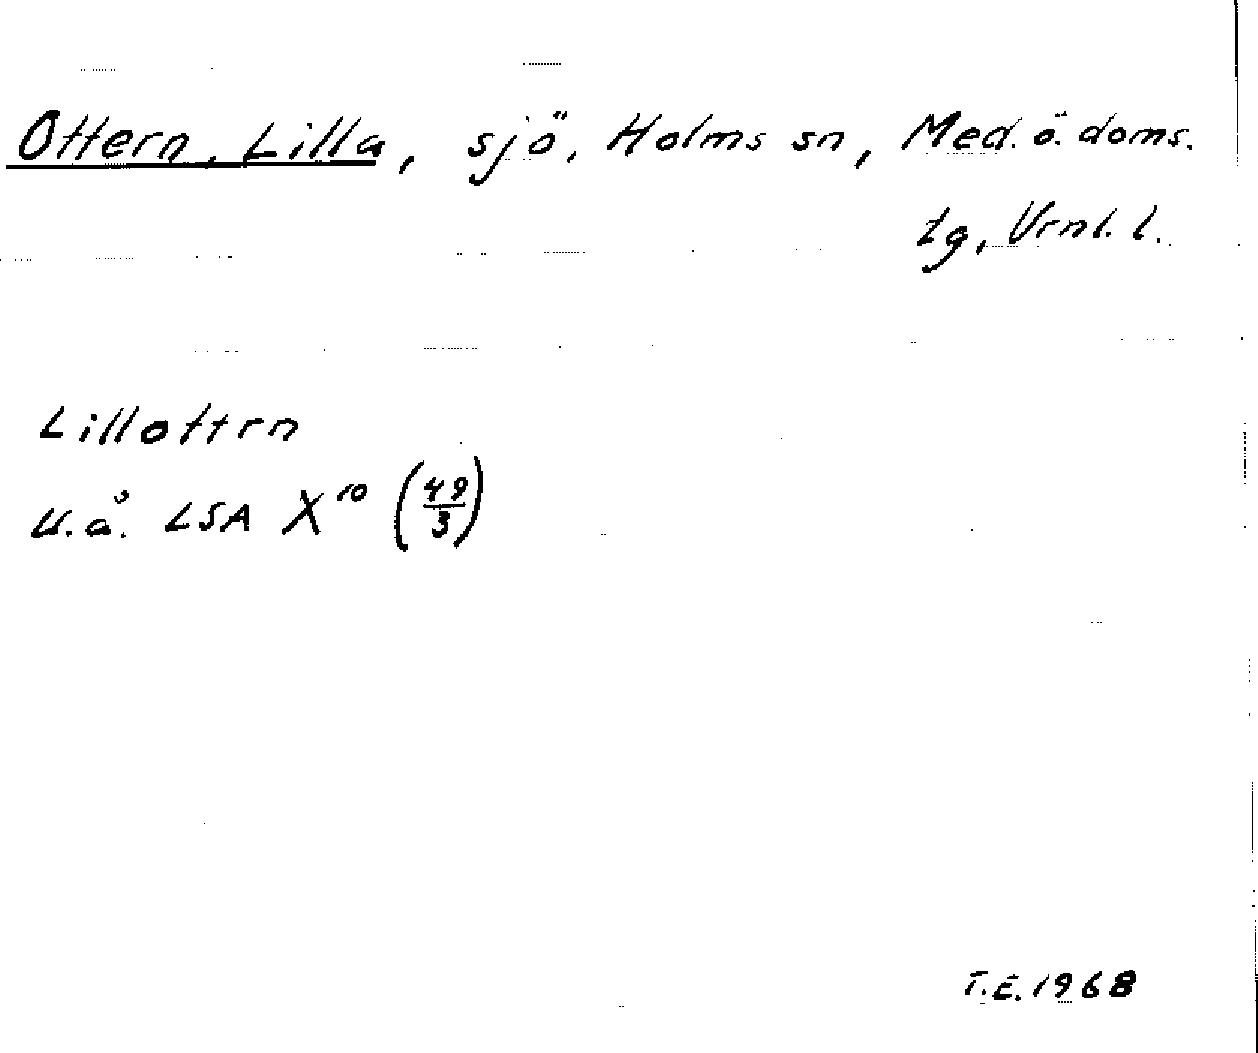 Ottern, Lilla, sjö, Holms sn, Med. ö. doms.
tg, Vrnl. l.
Lillottrn
u.å. LSA X¹⁰ (49/3)
T.E. 1968